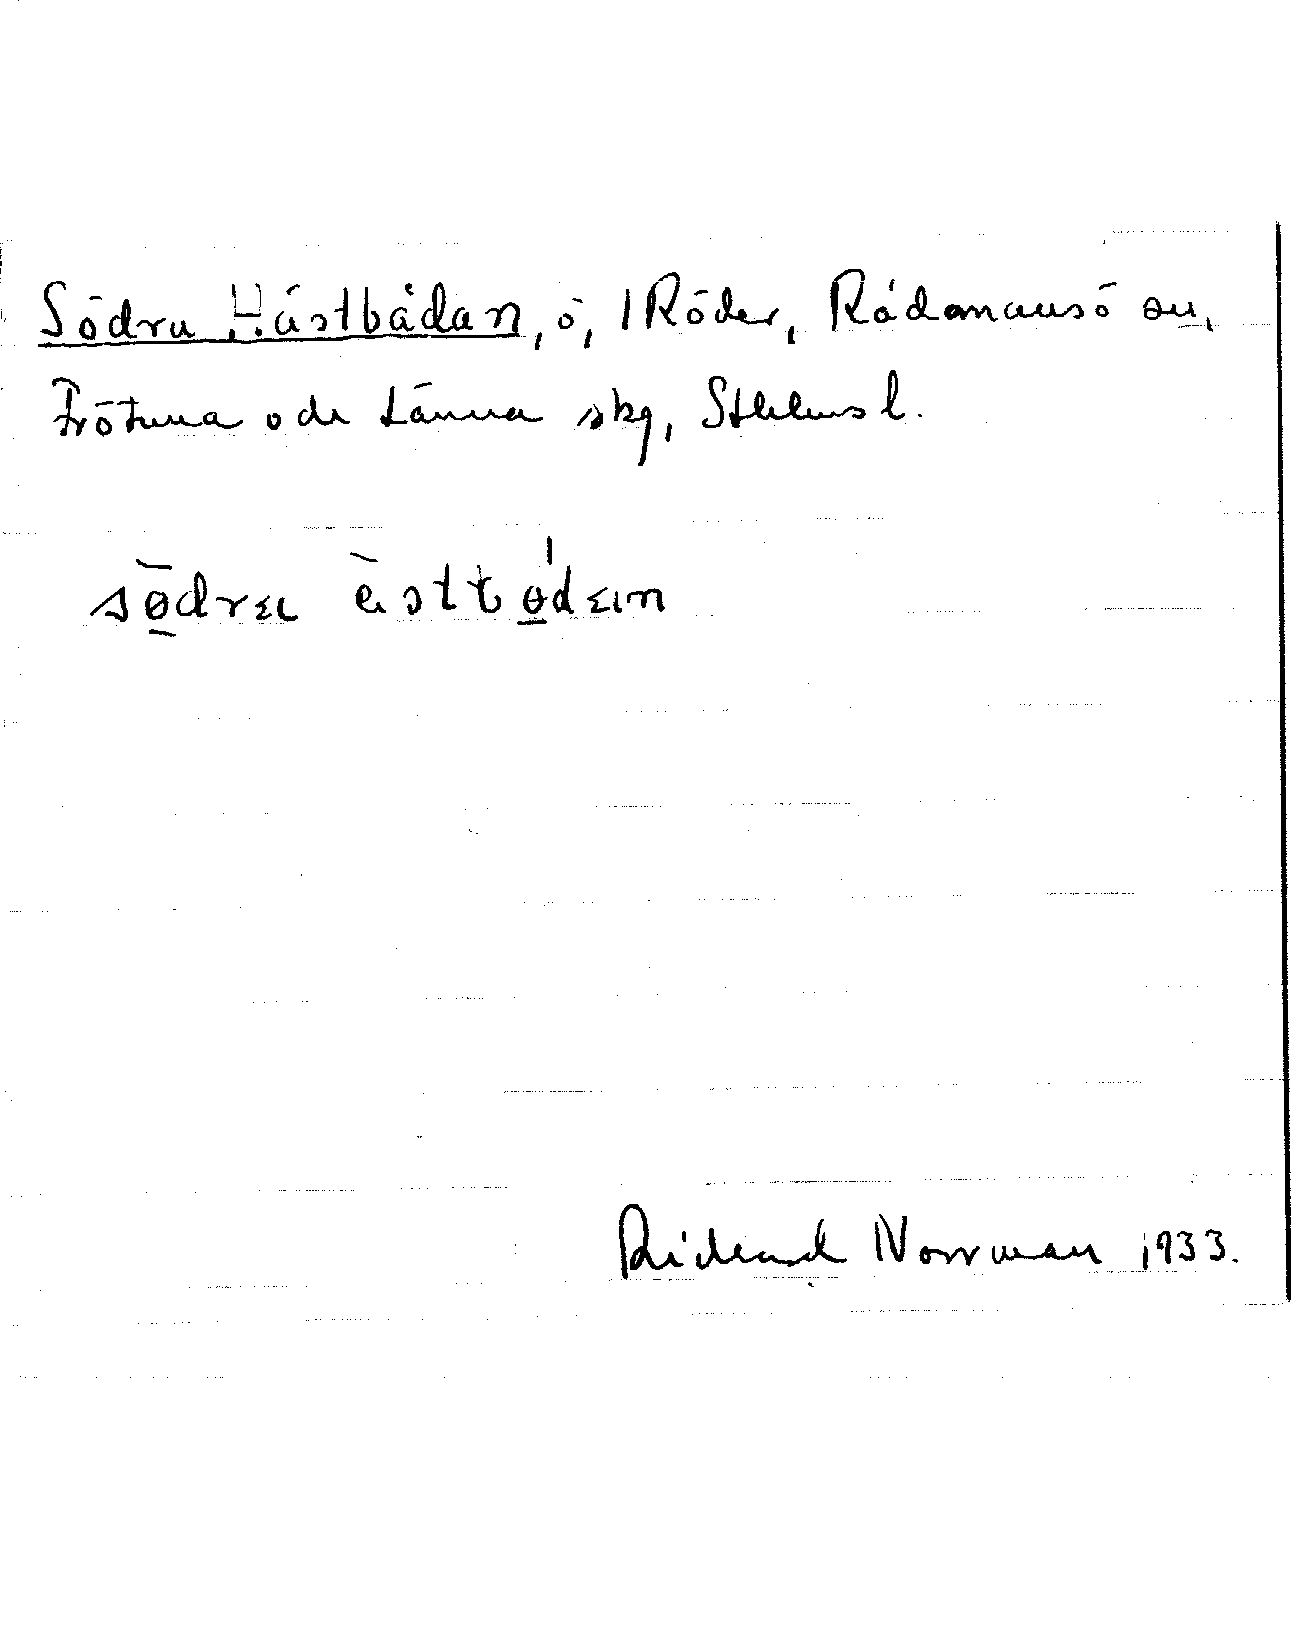 Södra Hästbådan, ö, i Röder, Rådmansö sn,
Frötuna och Länna skg, Sthlms l.
södra èstbådan
Richard Norrman 1933.